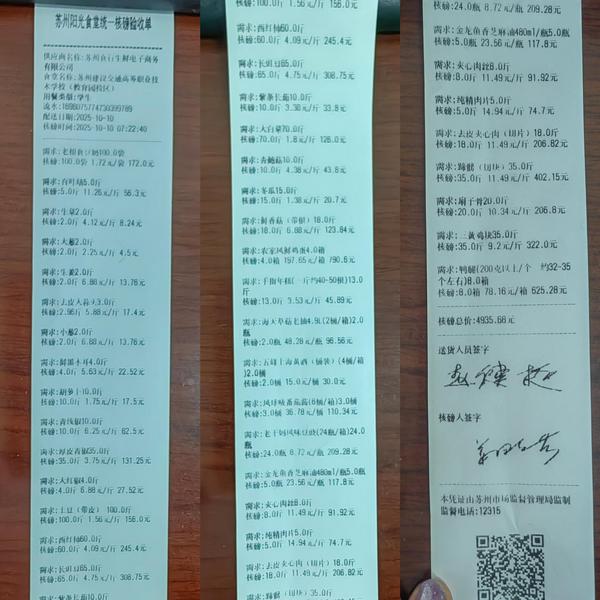 苏州阳光食堂统一核磅验收单
供应商名称:苏州食行生鲜电子商务
有限公司
食堂名称:苏州建设交通高等职业技
术学校(教育园校区)
用餐类型:学生
流水:1696075774730399789
配送日期:2025-10-10
核磅时间:2025-10-10 07:22:40
核磅:100.0袋 1.72元/袋 172.0元
需求:百叶结5.0斤
核磅:5.0斤 11.26元/斤 56.3元
需求:生菜2.0斤
核磅:2.0斤 4.12元/斤 8.24元
需求:大葱2.0斤
核磅:2.0斤 2.25元/斤 4.5元
需求:生姜2.0斤
核磅:2.0斤 6.88元/斤 13.76元
需求:去皮大蒜头3.0斤
核磅:2.96斤 5.88元/斤 17.4元
需求:小葱2.0斤
核磅:2.0斤 6.88元/斤 13.76元
需求:鲜黑木耳4.0斤
核磅:4.0斤 5.63元/斤 22.52元
需求:胡萝卜10.0斤
核磅:10.0斤 1.75元/斤 17.5元
需求:青线椒10.0斤
核磅:10.0斤 6.25元/斤 62.5元
需求:厚皮青椒35.0斤
核磅:35.0斤 3.75元/斤 131.25元
需求:大红椒4.0斤
核磅:4.0斤 6.88元/斤 27.52元
需求:土豆(带皮) 100.0斤
核磅:100.0斤 1.56元/斤 156.0元
需求:西红柿60.0斤
核磅:60.0斤 4.09元/斤 245.4元
需求:长豇豆65.0斤
核磅:65.0斤 4.75元/斤 308.75元
需求:紫条长茄10.0斤
核磅:100.0斤 1.56元/斤 156.0元
需求:西红柿60.0斤
核磅:60.0斤 4.09元/斤 245.4元
需求:长豇豆65.0斤
核磅:65.0斤 4.75元/斤 308.75元
需求:紫条长茄10.0斤
核磅:10.0斤 3.38元/斤 33.8元
需求:大白菜70.0斤
核磅:70.0斤 1.8元/斤 126.0元
需求:杏鲍菇10.0斤
核磅:10.0斤 4.38元/斤 43.8元
需求:冬瓜15.0斤
核磅:15.0斤 1.38元/斤 20.7元
需求:鲜香菇(带根)18.0斤
核磅:18.0斤 6.88元/斤 123.84元
需求:农家风鲜鸡蛋4.0箱
核磅:4.0箱 197.65元/箱 790.6元
需求:手指年糕(一斤约40-50根)13.0
斤
核磅:13.0斤 3.53元/斤 45.89元
需求:海天草菇老抽4.9L(2桶/箱)2.0
瓶
核磅:2.0瓶 48.28元/瓶 96.56元
需求:五峰上海黄酒(桶装)(4桶/箱
)2.0桶
核磅:2.0桶 15.0元/桶 30.0元
需求:凤球唛番茄酱(6桶/箱)3.0桶
核磅:3.0桶 36.78元/桶 110.34元
需求:老干妈风味豆豉(24瓶/箱)24.0
瓶
核磅:24.0瓶 8.72元/瓶 209.28元
需求:金龙鱼香芝麻油480ml/瓶5.0瓶
核磅:5.0瓶 23.56元/瓶 117.8元
需求:夹心肉丝8.0斤
核磅:8.0斤 11.49元/斤 91.92元
需求:纯精肉片5.0斤
核磅:5.0斤 14.94元/斤 74.7元
需求:去皮夹心肉(切片)18.0斤
核磅:18.0斤 11.49元/斤 206.82元
需求:蹄髈(切块)35.0斤
核磅:24.0瓶 8.72元/瓶 209.28元
需求:金龙鱼香芝麻油480ml/瓶5.0瓶
核磅:5.0瓶 23.56元/瓶 117.8元
需求:夹心肉丝8.0斤
核磅:8.0斤 11.49元/斤 91.92元
需求:纯精肉片5.0斤
核磅:5.0斤 14.94元/斤 74.7元
需求:去皮夹心肉(切片)18.0斤
核磅:18.0斤 11.49元/斤 206.82元
需求:蹄髈(切块)35.0斤
核磅:35.0斤 11.49元/斤 402.15元
需求:扇子骨20.0斤
核磅:20.0斤 10.34元/斤 206.8元
需求:三黄鸡块35.0斤
核磅:35.0斤 9.2元/斤 322.0元
需求:鸭腿(200克以上/个 约32-35
个左右)8.0箱
核磅:8.0箱 78.16元/箱 625.28元
核磅总价:4935.66元
送货人员签字
核磅人签字
本凭证由苏州市场监督管理局监制
监督电话:12315